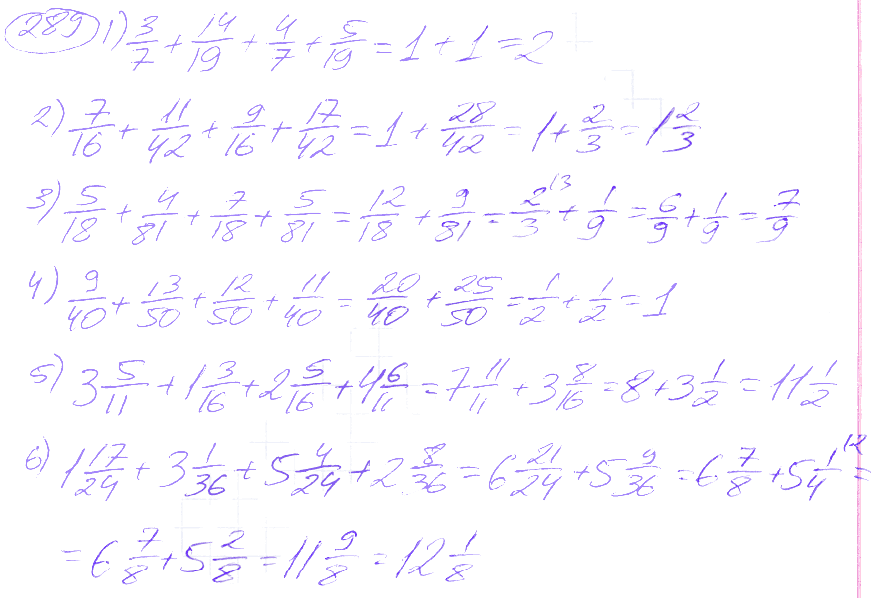 289 1) 3/7 + 14/19 + 4/7 + 5/19 = 1 + 1 = 2
2) 7/16 + 11/42 + 9/16 + 17/42 = 1 + 28/42 = 1 + 2/3 = 1 2/3
3) 5/18 + 4/81 + 7/18 + 5/81 = 12/18 + 9/81 = 2/3 \3 + 1/9 = 6/9 + 1/9 = 7/9
4) 9/40 + 13/50 + 12/50 + 11/40 = 20/40 + 25/50 = 1/2 + 1/2 = 1
5) 3 5/11 + 1 3/16 + 2 5/16 + 4 6/11 = 7 11/11 + 3 8/16 = 8 + 3 1/2 = 11 1/2
6) 1 17/24 + 3 1/36 + 5 4/24 + 2 8/36 = 6 21/24 + 5 9/36 = 6 7/8 + 5 1/4 \2 =
= 6 7/8 + 5 2/8 = 11 9/8 = 12 1/8